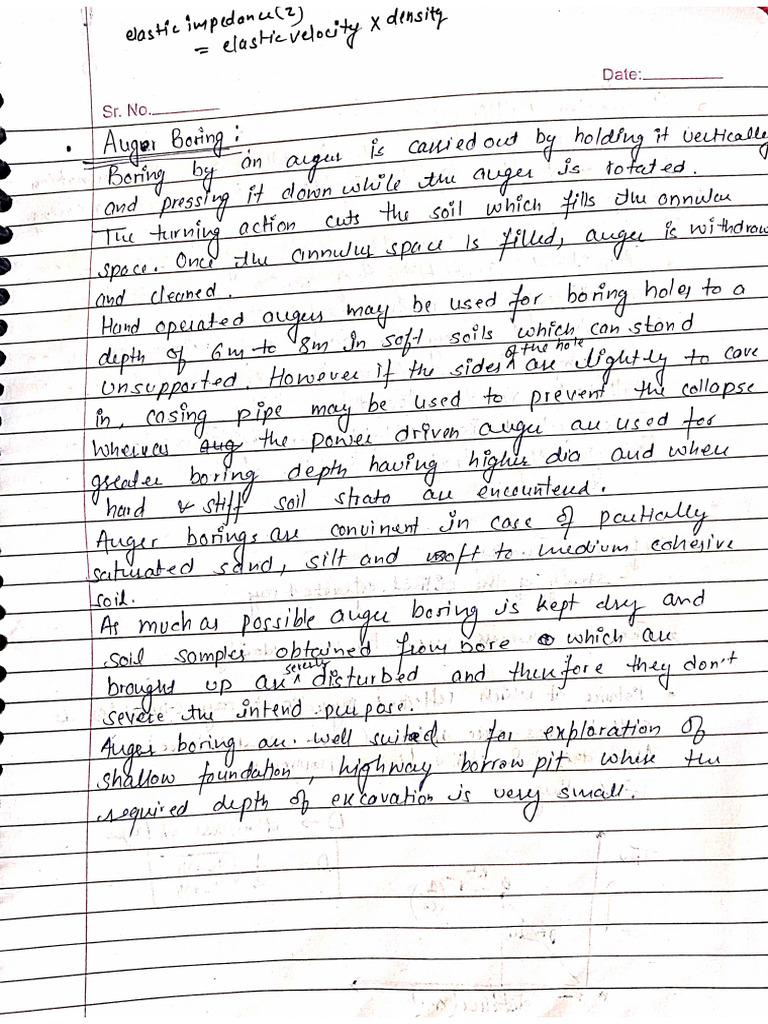 elastic impedance(z)
= elastic velocity x density
Date:
Sr. No.
Auger Boring:
Boring by an auger is carried out by holding it vertically
and pressing it down while the auger is rotated.
The turning action cuts the soil which fills the annular
space. Once the annulus space is filled, auger is withdraw
and cleaned.
Hand operated augers may be used for boring holes to a
depth of 6m to 8m in soft soils which can stand
unsupported. However if the sides of the hole are lightly to cave
in, casing pipe may be used to prevent the collapse
wheires the power driven auger are used for
greater boring depth having higher dia and when
hard & stiff soil strata are encountered.
Auger borings are convinent in case of partically
saturated sand, silt and soft to medium cohesive
soil.
As much as possible auger boring is kept dry and
soil samples obtained from bore which are
brought up are severly disturbed and therefore they don't
severe the intend purpose.
Auger boring are well suited for exploration of
shallow foundation, highway borrow pit where the
required depth of excavation is very small.